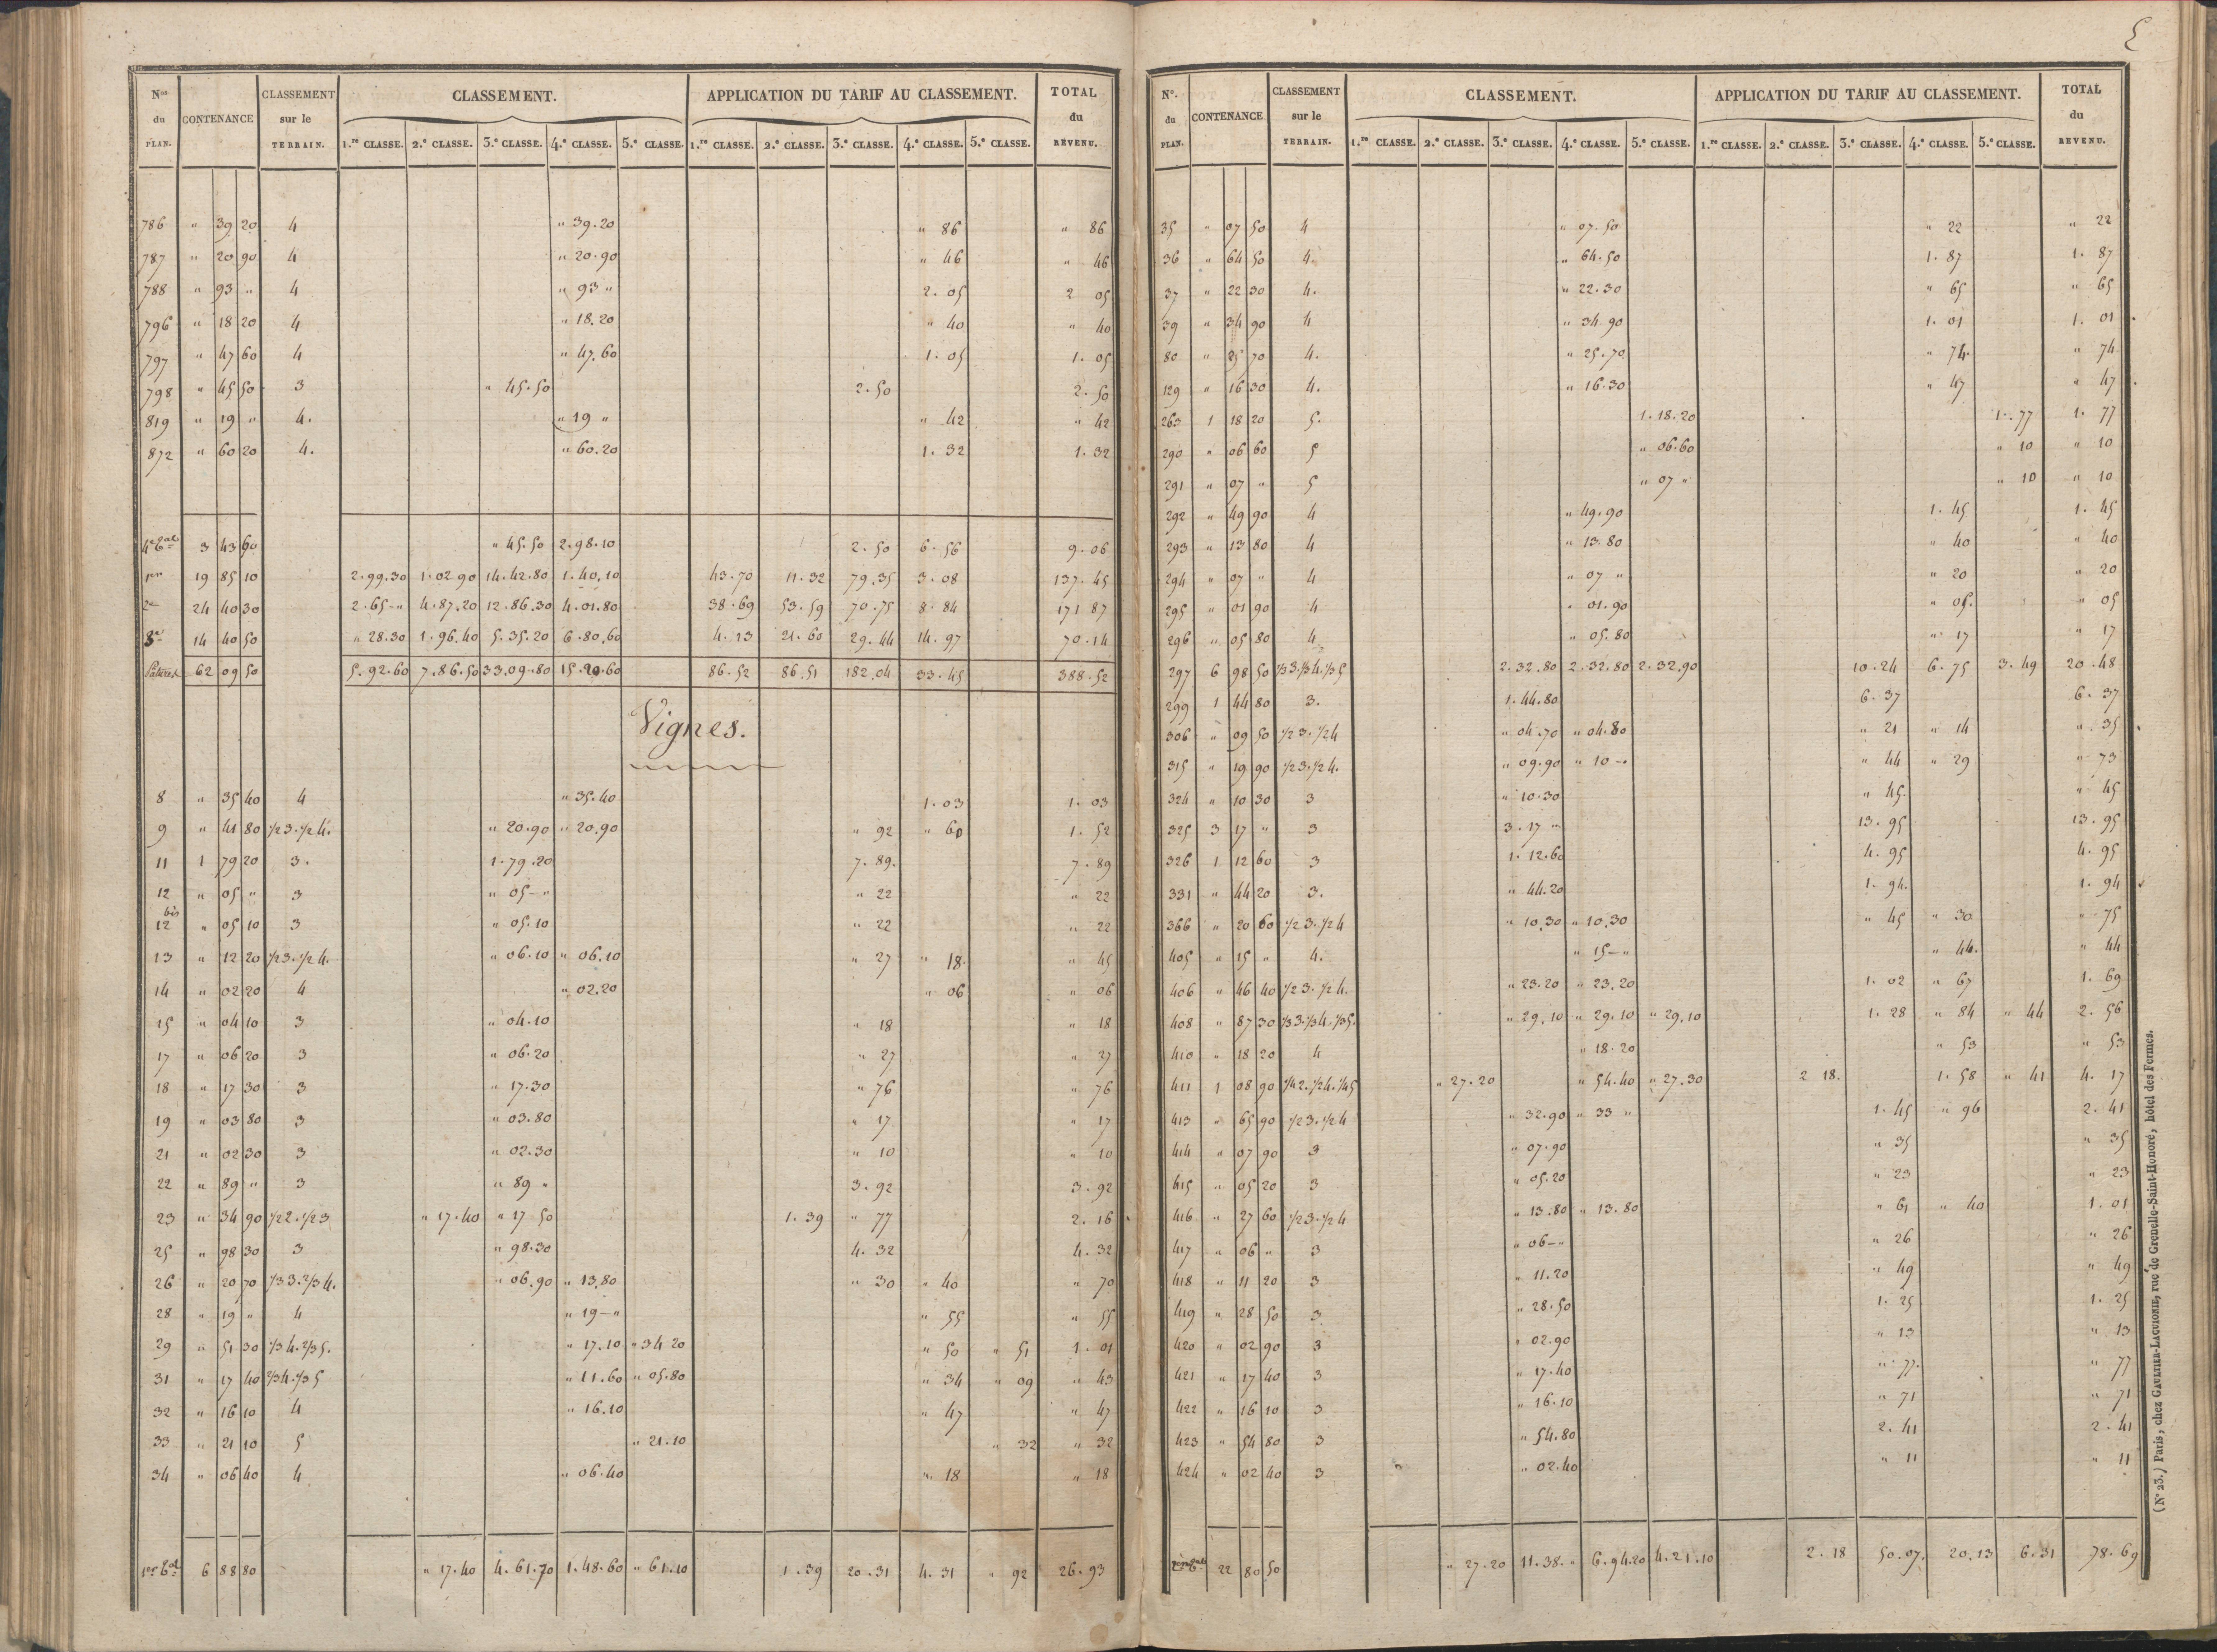 5
Nos du PLAN. CONTENANCE CLASSEMENT sur le TERRAIN. CLASSEMENT. APPLICATION DU TARIF AU CLASSEMENT. TOTAL du REVENU.
1.re CLASSE. 2.e CLASSE. 3.e CLASSE. 4.e CLASSE. 5.e CLASSE. 1.re CLASSE. 2.e CLASSE. 3.e CLASSE. 4.e CLASSE. 5.e CLASSE.
786 " 39 20 4 " 39.20 " 86 " 86
787 " 20 90 4 " 20.90 " 46 " 46
788 " 93 " 4 " 93 " 2.05 2 05
796 " 18 20 4 " 18.20 " 40 " 40
797 " 47 60 4 " 47.60 1.05 1.05
798 " 45 50 3 " 45.50 2.50 2.50
819 " 19 " 4. " 19 " " 42 " 42
872 " 60 20 4. " 60.20 1.32 1.32
3 43 60 " 45.50 2.98.10 2.50 6.56 9.06
1er 19 85 10 2.99.30 1.02.90 14.42.80 1.40.10 43.70 11.32 79.35 3.08 137.45
2e 24 40 30 2.65-" 4.87.20 12.86.30 4.01.80 38.69 53.59 70.75 8.84 171 87
3e 14 40 50 " 28.30 1.96.40 5.35.20 6.80.60 4.13 21.60 29.44 14.97 70.14
Pâtures 62 09 50 5.92.60 7.86.50 33.09.80 15.20.60 86.52 86.51 182.04 33.45 388.52
Vignes.
8 " 35 40 4 " 35.40 1.03 1.03
9 " 41 80 1/2 3.1/2 4. " 20.90 " 20.90 " 92 " 60 1.52
11 1 79 20 3. 1.79.20 7.89. 7.89
12 " 05 " 3 " 05-" " 22 " 22
12 bis " 05 10 3 " 05.10 " 22 " 22
13 " 12 20 1/2 3.1/2 4. " 06.10 " 06.10 " 27 " 18. " 45
14 " 02 20 4 " 02.20 " 06 " 06
15 " 04 10 3 " 04.10 " 18 " 18
17 " 06 20 3 " 06.20 " 27 " 27
18 " 17 30 3 " 17.30 " 76 " 76
19 " 03 80 3 " 03.80 " 17 " 17
21 " 02 30 3 " 02.30 " 10 " 10
22 " 89 " 3 " 89 " 3.92 3.92
23 " 34 90 1/2 2.1/2 3 " 17.40 " 17 50 1.39 " 77 2.16
25 " 98 30 3 " 98.30 4.32 4.32
26 " 20 70 1/3 3.2/3 4. " 06.90 " 13.80 " 30 " 40 " 70
28 " 19 " 4 " 19-" " 55 " 55
29 " 51 30 1/3 4.2/3 5. " 17.10 " 34 20 " 50 " 51 1.01
31 " 17 40 2/3 4.1/3 5 " 11.60 " 05.80 " 34 " 09 " 43
32 " 16 10 4 " 16.10 " 47 " 47
33 " 21 10 5 " 21.10 " 32 " 32
34 " 06 40 4 " 06.40 " 18 " 18
6 88 80 " 17.40 4.61.70 1.48.60 " 61.10 1.39 20.31 4.31 " 92 26.93
No. du PLAN. CONTENANCE CLASSEMENT sur le TERRAIN. CLASSEMENT. APPLICATION DU TARIF AU CLASSEMENT. TOTAL du REVENU.
1.re CLASSE. 2.e CLASSE. 3.e CLASSE. 4.e CLASSE. 5.e CLASSE. 1.re CLASSE. 2.e CLASSE. 3.e CLASSE. 4.e CLASSE. 5.e CLASSE.
35 " 07 50 4 " 07.50 " 22 " 22
36 " 64 50 4. " 64.50 1.87 1.87
37 " 22 30 4. " 22.30 " 65 " 65
39 " 34 90 4 " 34.90 1.01 1.01
80 " 25 70 4. " 25.70 " 74. " 74
129 " 16 30 4. " 16.30 " 47 " 47
263 1 18 20 5. 1.18.20 1.77 1.77
290 " 06 60 5 " 06.60 " 10 " 10
291 " 07 " 5 " 07 " " 10 " 10
292 " 49 90 4 " 49.90 1.45 1.45
293 " 13 80 4 " 13.80 " 40 " 40
294 " 07 " 4 " 07 " " 20 " 20
295 " 01 90 4 " 01.90 " 05. " 05
296 " 05 80 4 " 05.80 " 17 " 17
297 6 98 50 1/3 3.1/3 4.1/3 5 2.32.80 2.32.80 2.32.90 10.24 6.75 3.49 20.48
299 1 44 80 3. 1.44.80 6.37 6.37
306 " 09 50 1/2 3.1/2 4 " 04.70 " 04.80 " 21 " 14 " 35
315 " 19 90 1/2 3.1/2 4. " 09.90 " 10-" " 44 " 29 " 73
324 " 10 30 3 " 10.30 " 45. " 45
325 3 17 " 3 3.17 " 13.95 13.95
326 1 12 60 3 1.12.60 4.95 4.95
331 " 44 20 3. " 44.20 1.94. 1.94
366 " 20 60 1/2 3.1/2 4 " 10.30 " 10.30 " 45 " 30 " 75
405 " 15 " 4. " 15-" " 44. " 44
406 " 46 40 1/2 3.1/2 4. " 23.20 " 23.20 1.02 " 67 1.69
408 " 87 30 1/3 3.1/3 4.1/3 5. " 29.10 " 29.10 " 29.10 1.28 " 84 " 44 2.56
410 " 18 20 4 " 18.20 " 53 " 53
411 1 08 90 1/4 2.1/2 4.1/4 5 " 27.20 " 54.40 " 27.30 2 18. 1.58 " 41 4.17
413 " 65 90 1/2 3.1/2 4 " 32.90 " 33 " 1.45 " 96 2.41
414 " 07 90 3 " 07.90 " 35 " 35
415 " 05 20 3 " 05.20 " 23 " 23
416 " 27 60 1/2 3.1/2 4 " 13.80 " 13.80 " 61 " 40 1.01
417 " 06 " 3 " 06-" " 26 " 26
418 " 11 20 3 " 11.20 " 49 " 49
419 " 28 50 3. " 28.50 1.25 1.25
420 " 02 90 3 " 02.90 " 13 " 13
421 " 17 40 3 " 17.40 " 77. " 77
422 " 16 10 3 " 16.10 " 71 " 71
423 " 54 80 3 " 54.80 2.41 2.41
424 " 02 40 3 " 02.40 " 11 " 11
22 80 50 " 27.20 11.38." 6.94.20 4.21.10 2.18 50.07. 20.13 6.31 78.69
(No 23.) Paris, chez GAULTIER-LAGUIONIE, rue de Grenelle-Saint-Honoré, hôtel des Fermes.